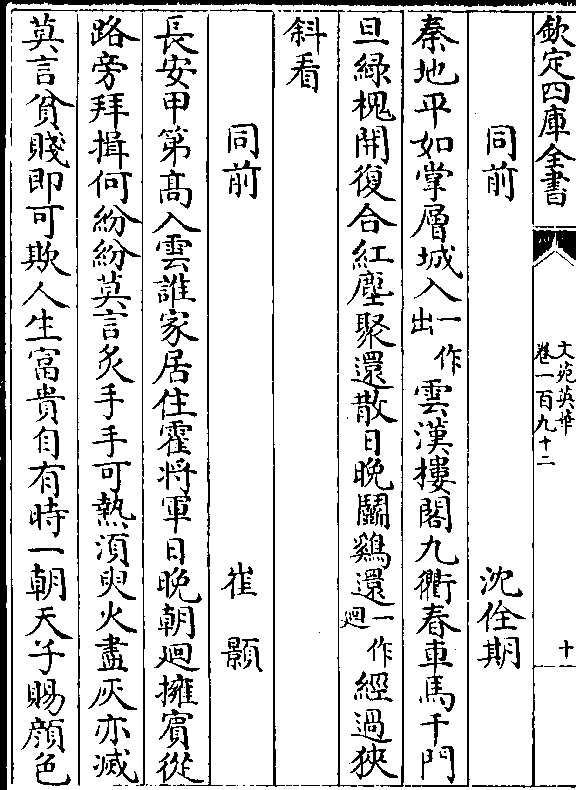 欽定四庫全書
文苑英華
卷一百九十二
十
同前 沈佺期
秦地平如掌層城入一作出雲漢樓閣九衢春車馬千門
旦緑槐開復合紅塵聚還散日晚鬭鷄還一作迴經過狹
斜看
同前 崔顥
長安甲第髙入雲誰家居住霍將軍日晚朝迴擁賓從
路旁拜揖何紛紛莫言炙手手可熱須臾火盡灰亦滅
莫言貧賤即可欺人生富貴自有時一朝天子賜顔色